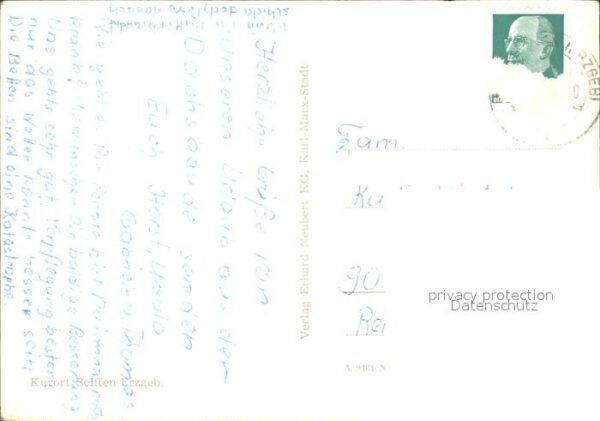 Herzliche Grüße von
unseren Urlaub aus der
Dachsbaude senden
Euch Horst, Ursula
Gabriele u. Thomas
Wie geht es Dir Bist Du immer noch
krank? Wir wünschen Dir baldige Besserung
Uns gehts sehr gut Verpflegung bestens
nur das Wetter könnte besser sein
Die Betten sind eine Katastrophe.
Kurort Seiffen Erzgeb.
Verlag Erhard Neubert KG, Karl-Marx-Stadt
ERZGEB
Fam.
Ku
90
Re
privacy protection
Datenschutz
A 9484 N